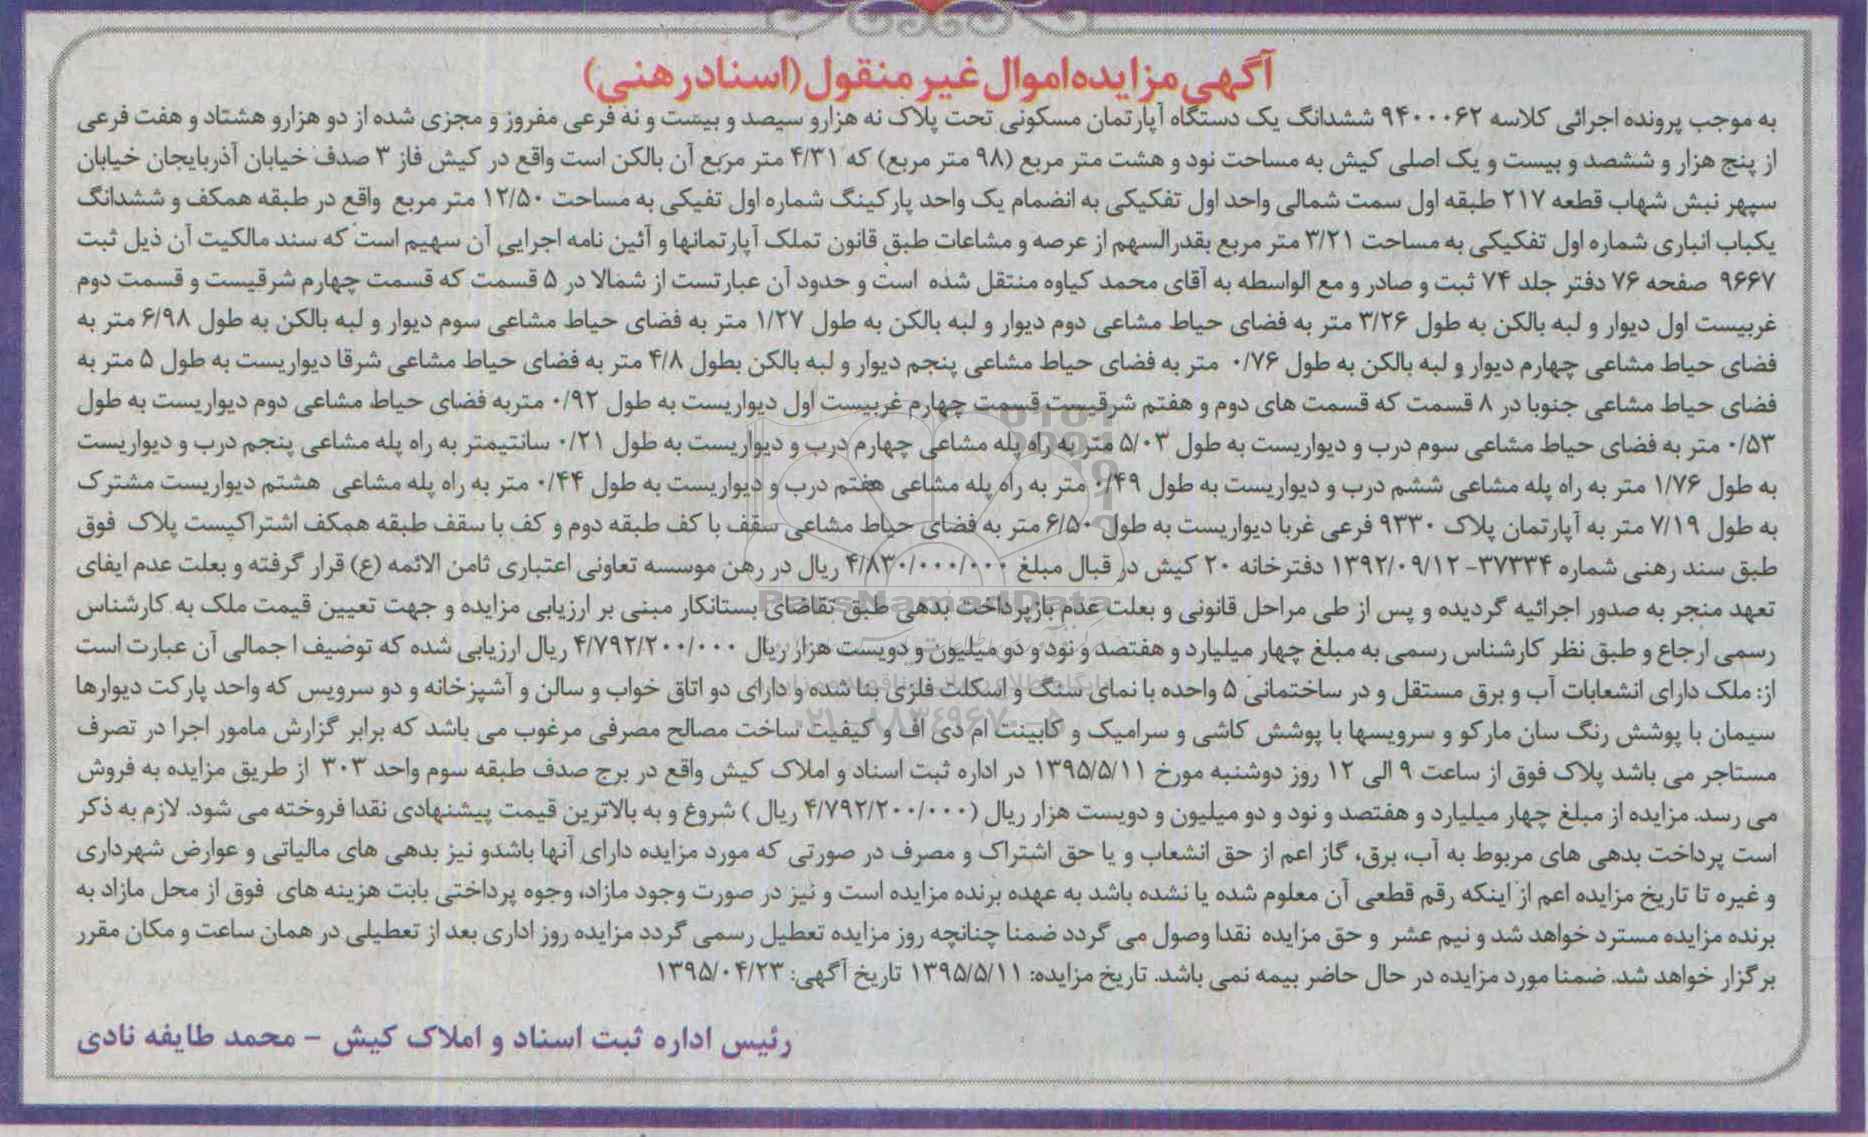 آگهی مزایده اموال غیر منقول (اسناد رهنی)
به موجب پرونده اجرائی کلاسه ۹۴۰۰۰۶۲ ششدانگ یک دستگاه آپارتمان مسکونی تحت پلاک نه هزارو سیصد و بیست و نه فرعی مفروز و مجزی شده از دو هزارو هشتاد و هفت فرعی
از پنج هزار و ششصد و بیست و یک اصلی کیش به مساحت نود و هشت متر مربع (۹۸ متر مربع) که ۴/۳۱ متر مربع آن بالکن است واقع در کیش فاز ۳ صدف خیابان آذربایجان خیابان
سپهر نبش شهاب قطعه ۲۱۷ طبقه اول سمت شمالی واحد اول تفکیکی به انضمام یک واحد پارکینگ شماره اول تفیکی به مساحت ۱۲/۵۰ متر مربع واقع در طبقه همکف و ششدانگ
یکباب انباری شماره اول تفکیکی به مساحت ۳/۲۱ متر مربع بقدرالسهم از عرصه و مشاعات طبق قانون تملک آپارتمانها و آئین نامه اجرایی آن سهیم است که سند مالکیت آن ذیل ثبت
۹۶۶۷ صفحه ۷۶ دفتر جلد ۷۴ ثبت و صادر و مع الواسطه به آقای محمد کیاوه منتقل شده است و حدود آن عبارتست از شمالا در ۵ قسمت که قسمت چهارم شرقیست و قسمت دوم
غربیست اول دیوار و لبه بالکن به طول ۳/۲۶ متر به فضای حیاط مشاعی دوم دیوار و لبه بالکن به طول ۱/۲۷ متر به فضای حیاط مشاعی سوم دیوار و لبه بالکن به طول ۶/۹۸ متر به
فضای حیاط مشاعی چهارم دیوار و لبه بالکن به طول ۰/۷۶ متر به فضای حیاط مشاعی پنجم دیوار و لبه بالکن بطول ۴/۸ متر به فضای حیاط مشاعی شرقا دیواریست به طول ۵ متر به
فضای حیاط مشاعی جنوبا در ۸ قسمت که قسمت های دوم و هفتم شرقیست قسمت چهارم غربیست اول دیواریست به طول ۰/۹۲ متربه فضای حیاط مشاعی دوم دیواریست به طول
۰/۵۳ متر به فضای حیاط مشاعی سوم درب و دیواریست به طول ۵/۰۳ متر به راه پله مشاعی چهارم درب و دیواریست به طول ۰/۲۱ سانتیمتر به راه پله مشاعی پنجم درب و دیواریست
به طول ۱/۷۶ متر به راه پله مشاعی ششم درب و دیواریست به طول ۰/۴۹ متر به راه پله مشاعی هفتم درب و دیواریست به طول ۰/۴۴ متر به راه پله مشاعی هشتم دیواریست مشترک
به طول ۷/۱۹ متر به آپارتمان پلاک ۹۳۳۰ فرعی غربا دیواریست به طول ۶/۵۰ متر به فضای حیاط مشاعی سقف با کف طبقه دوم و کف با سقف طبقه همکف اشتراکیست پلاک فوق
طبق سند رهنی شماره ۳۷۳۳۴- ۱۳۹۲/۰۹/۱۲ دفترخانه ۲۰ کیش در قبال مبلغ ۴/۸۳۰/۰۰۰/۰۰۰ ریال در رهن موسسه تعاونی اعتباری ثامن الائمه (ع) قرار گرفته و بعلت عدم ایفای
تعهد منجر به صدور اجرائیه گردیده و پس از طی مراحل قانونی و بعلت عدم بازپرداخت بدهی طبق تقاضای بستانکار مبنی بر ارزیابی مزایده و جهت تعیین قیمت ملک به کارشناس
رسمی ارجاع و طبق نظر کارشناس رسمی به مبلغ چهار میلیارد و هفتصد و نود و دو میلیون و دویست هزار ریال ۴/۷۹۲/۲۰۰/۰۰۰ ریال ارزیابی شده که توضیف ا جمالی آن عبارت است
از: ملک دارای انشعابات آب و برق مستقل و در ساختمانی ۵ واحده با نمای سنگ و اسکلت فلزی بنا شده و دارای دو اتاق خواب و سالن و آشپزخانه و دو سرویس که واحد پارکت دیوارها
سیمان با پوشش رنگ سان مارکو و سرویسها با پوشش کاشی و سرامیک و کابینت ام دی اف و کیفیت ساخت مصالح مصرفی مرغوب می باشد که برابر گزارش مامور اجرا در تصرف
مستاجر می باشد پلاک فوق از ساعت ۹ الی ۱۲ روز دوشنبه مورخ ۱۳۹۵/۵/۱۱ در اداره ثبت اسناد و املاک کیش واقع در برج صدف طبقه سوم واحد ۳۰۳ از طریق مزایده به فروش
می رسد. مزایده از مبلغ چهار میلیارد و هفتصد و نود و دو میلیون و دویست هزار ریال (۴/۷۹۲/۲۰۰/۰۰۰ ریال ) شروع و به بالاترین قیمت پیشنهادی نقدا فروخته می شود. لازم به ذکر
است پرداخت بدهی های مربوط به آب، برق، گاز اعم از حق انشعاب و یا حق اشتراک و مصرف در صورتی که مورد مزایده دارای آنها باشدو نیز بدهی های مالیاتی و عوارض شهرداری
و غیره تا تاریخ مزایده اعم از اینکه رقم قطعی آن معلوم شده یا نشده باشد به عهده برنده مزایده است و نیز در صورت وجود مازاد، وجوه پرداختی بابت هزینه های فوق از محل مازاد به
برنده مزایده مسترد خواهد شد و نیم عشر و حق مزایده نقدا وصول می گردد ضمنا چنانچه روز مزایده تعطیل رسمی گردد مزایده روز اداری بعد از تعطیلی در همان ساعت و مکان مقرر
برگزار خواهد شد. ضمنا مورد مزایده در حال حاضر بیمه نمی باشد. تاریخ مزایده: ۱۳۹۵/۵/۱۱ تاریخ آگهی: ۱۳۹۵/۰۴/۲۳
رئیس اداره ثبت اسناد و املاک کیش - محمد طایفه نادی
ParsNamadData
۰۲۱-۸۸۳۴۹۶۷۰-۵